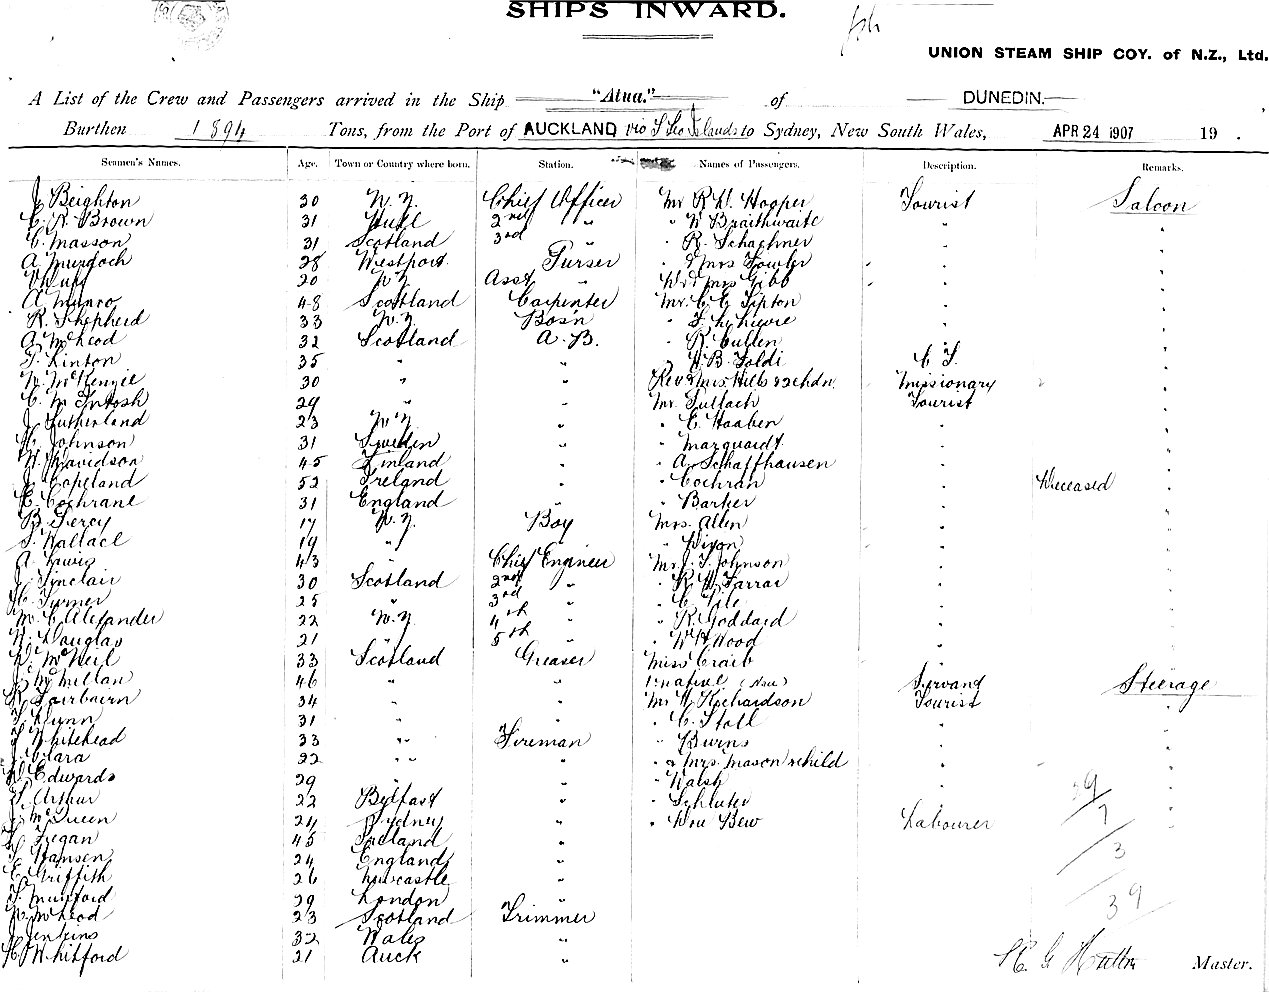 SHIPS INWARD.
UNION STEAM SHIP COY. of N.Z., Ltd.
A List of the Crew and Passengers arrived in the Ship "Atua." of DUNEDIN.
Burthen 1894 Tons, from the Port of AUCKLAND via S Sea Islands to Sydney, New South Wales, APR 24 1907 19 .
Seamen's Names. Age. Town or Country where born. Station. Names of Passengers. Description. Remarks.
J Beighton 30 N.Z. Chief Officer Mr R.W. Hooper Tourist Saloon
C. R. Brown 31 Hull 2nd " " W Braithwaite "
C. Masson 31 Scotland 3rd " " R. Schachner "
A Murdoch 28 Westport Purser " & Mrs Fowler "
20 NZ Asst " Mrs Gibb "
A Munro 48 Scotland Carpenter Mr. C. C. Tipton "
R. Shepherd 33 N.Z. Bos'n "
A McLeod 32 Scotland A.B. " R Cullen "
T. Linton 35 " " " B. Foldi C.S.
N. McKenzie 30 " " Rev & Mrs Hills & 2 chdn. Missionary
C. McIntosh 29 " " Mr. Tullach Tourist
J Sutherland 23 N.Z. " " C Haaben "
Johnson 31 Sweden " " Marquardt "
Davidson 45 Finland " " A. Schaffhausen "
J Copeland 52 Ireland " " Cochran " Deceased
E. Cochrane 31 England " " Barker "
B. Percy 17 N.Z. Boy Mrs. Allen "
Wallace 19 " " " Dixon "
A Lewis 43 " Chief Engineer Mr J. Johnson "
J Sinclair 30 Scotland 2nd " " Farrar "
Turner 25 " 3rd " " C. Pile "
M. C. Alexander 22 N.Z 4th " " R Goddard "
Douglas 21 " 5th " " W Wood "
McNeil 33 Scotland Greaser Miss Craib "
McMillan 46 " " 1 native (Niue) Servant Steerage
R Fairbairn 34 " " Mr Richardson Tourist "
Flynn 31 " " " C. Stoll "
Whitehead 33 " " Fireman " Burns "
O'Hara 22 " " " " & Mrs. Mason & child "
Edwards 29 " " Walsh "
Arthur 22 Belfast " " Schluter "
McQueen 24 Sydney " " Bew Labourer "
Fegan 45 Ireland "
Hansen 24 England "
E Griffith 26 Newcastle "
Mumford 29 London "
McLeod 23 Scotland Trimmer 39
J Jenkins 32 Wales "
Whitford 21 Auck "
Master.